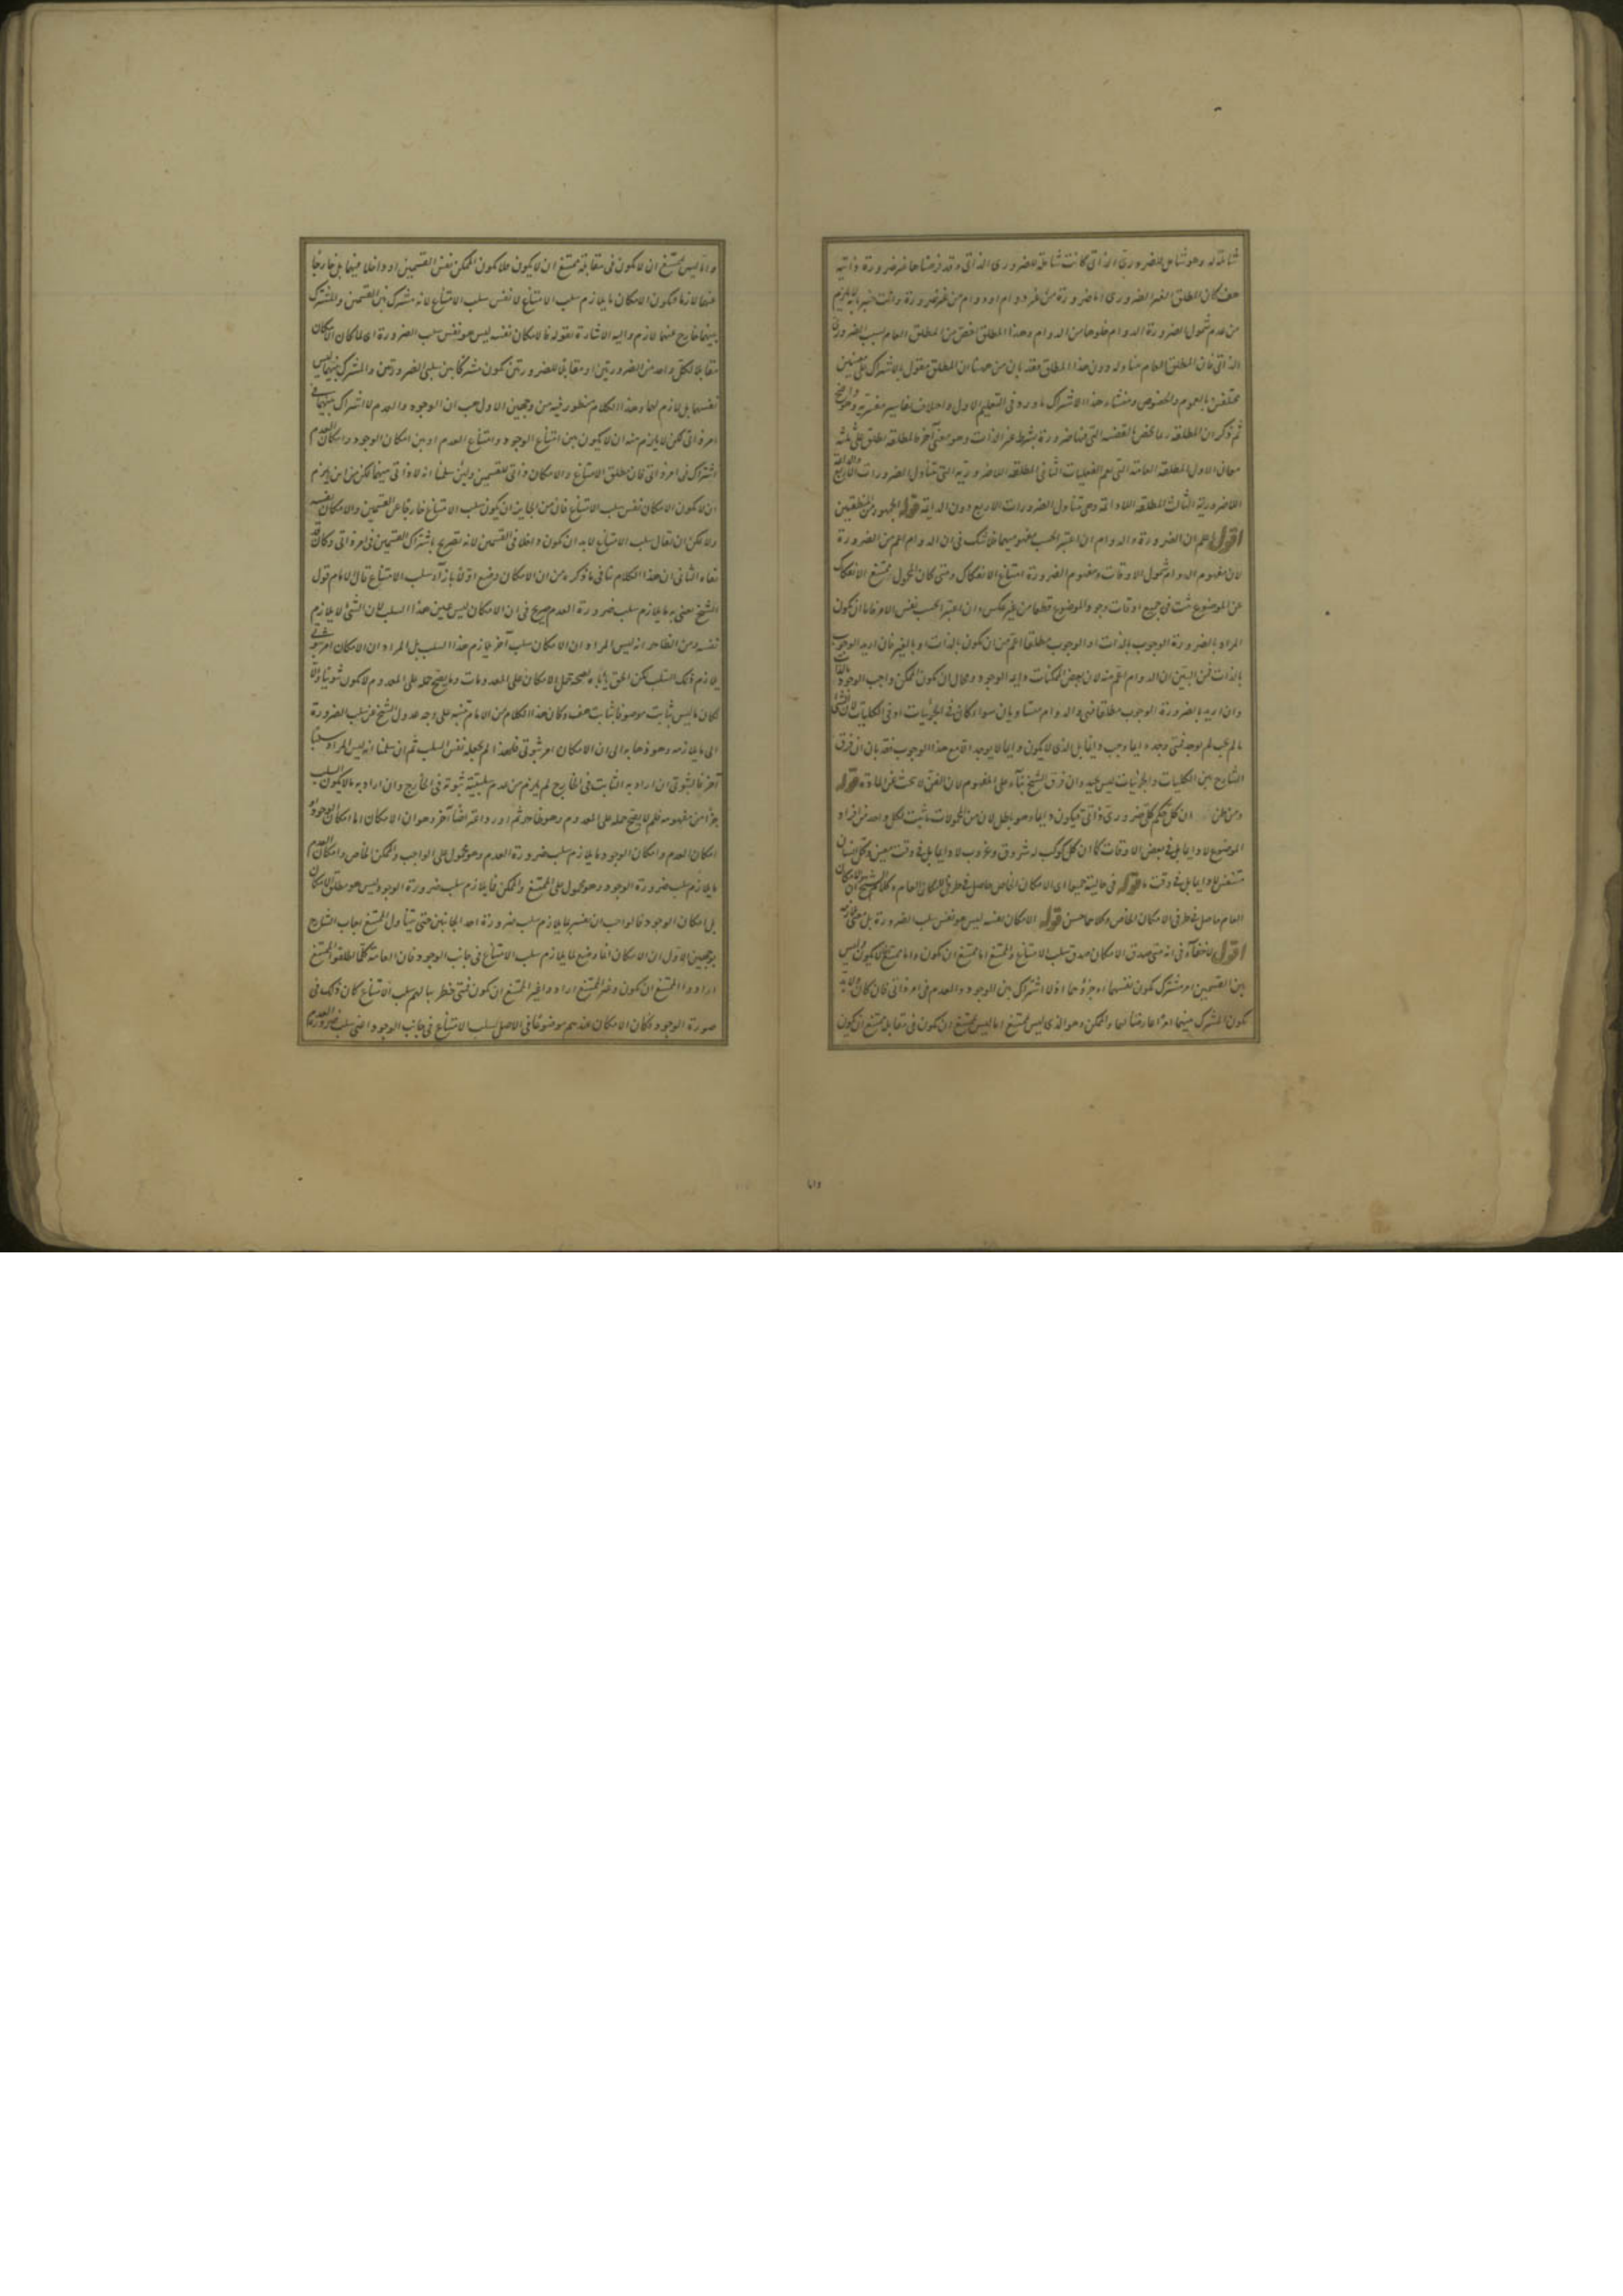 شاملة له وهو شامل للضروري الذاتي كانت شاملة للضروري الذاتي وقد فرضناها غير ضرورة ذاتية
هف كان المطلق الغير الضروري اما ضرورة من غير دوام او دوام من غير ضرورة وانت خبير بانه لا يلزم
من عدم شمول الضرورة الدوام خلوها من الدوام وهذا المطلق اخص من المطلق العام بسبب الضرورة
الذاتي فان المطلق العام متناوله دون هذا المطلق فقد بان من هذا ان المطلق مقول بالاشتراك على معنيين
مختلفين بالعموم والخصوص ومنشاء هذا الاشتراك ما ورد في التعليم الاول واختلاف تفاسير مفسريه وهو واضح
ثم ذكر ان المطلقة ربما يخص بالقضية التي فيها ضرورة بشرط غير الذات وهو معنى آخر فالمطلقة يطلق على ثلثة
معان الاول المطلقة العامة التي تعم الفعليات الثاني المطلقة اللاضرورية التي تتناول الضرورات الاربع
اللاضرورية الثالث المطلقة اللادائمة وهي تتناول الضرورات الاربع دون الدائمة قوله والجمهور من المنطقيين
اقول اعلم ان الضرورة والدوام ان اعتبر بحسب مفهوميهما فلا شك في ان الدوام اعم من الضرورة
لان مفهوم الدوام شمول الاوقات ومفهوم الضرورة امتناع الانفكاك ومتى كان المحمول ممتنع الانفكاك
عن الموضوع ثبت في جميع اوقات وجود الموضوع قطعا من غير عكس وان اعتبر بحسب نفس الامر فاما ان يكون
المراد بالضرورة الوجوب بالذات او الوجوب مطلقا اعم من ان يكون بالذات او بالغير فان اريد الوجوب
بالذات فمن البين ان الدوام اعم منه لان بعض الممكنات دايم الوجود ومحال ان يكون الممكن واجب الوجود بالذات
وان اريد بالضرورة الوجوب مطلقا فهي والدوام متساويان سواء كان في الجزئيات او في الكليات لان الشئ
ما لم يجب لم يوجد فمتى وجد دايما وجب دايما بل الذي لا يكون دايما لا يوجد الا مع هذا الوجوب فقد بان ان فرق
الشارح بين الكليات والجزئيات ليس بجيد وان فرق الشيخ بناء على المفهوم لان الفن لا بحث عن المادة قوله
ومن ظن ان كل حكم كلي ضروري ذاتي فيكون دايما وهو باطل لان من المحمولات ما يثبت لكل واحد من افراد
الموضوع لا دايما بل في بعض الاوقات كما ان كل كوكب له شروق وغروب لا دايما بل في وقت معين وكل انسان
متنفس لا دايما بل في وقت ما قوله في حاليته جميعا اى الامكان الخاص حاصل في طرفي الامكان العام
العام حاصل في طرفي الامكان الخاص وكلاهما حسن قوله الامكان نفسه ليس هو نفس سلب الضرورة بل معنى يلازمه
اقول لا خفاء في انه متى صدق الامكان صدق سلب الامتناع والممتنع اما ممتنع ان يكون واما ممتنع ان لا يكون وليس
بين القسمين امر مشترك يكون نفسهما او جزؤهما اذ لا اشتراك بين الوجود والعدم في امر ذاتي فان كان فلابد
يكون المشترك بينهما امرا عارضا لهما والممكن وهو الذي ليس بممتنع اما ليس بممتنع ان يكون في مقابل ممتنع ان يكون
واما
واما ليس بممتنع ان لا يكون في مقابلة ممتنع ان لا يكون فلا يكون الممكن نفس القسمين او داخلا فيهما بل خارجا
عنهما لازما فيكون الامكان ما يلازم سلب الامتناع لا نفس سلب الامتناع لانه مشترك بين القسمين والمشترك
بينهما خارج عنهما لازم واليه الاشارة بقوله فالامكان نفسه ليس هو نفس سلب الضرورة اى لما كان الامكان
مقابلا لكل واحد من الضرورتين او مقابلا للضرورتين يكون مشتركا بين سلبي الضرورتين والمشترك بينهما ليس
نفسهما بل لازم لهما وهذا الكلام منظور فيه من وجهين الاول هب ان الوجود والعدم لا اشتراك بينهما في
امر ذاتي لكن لا يلزم منه ان لا يكون بين امتناع الوجود وامتناع العدم او بين امكان الوجود وامكان العدم
اشتراك في امر ذاتي فان مطلق الامتناع والامكان ذاتي للقسمين ولئن سلمنا انه لا ذاتي بينهما لكن من اين يلزم
ان لا يكون الامكان نفس سلب الامتناع فان من الجايز ان يكون سلب الامتناع خارجا عن القسمين والامكان نفسه
ولا يمكن ان يقال سلب الامتناع لابد ان يكون داخلا في القسمين لانه تصريح باشتراك القسمين في امر ذاتي وكان قد
نفاه الثاني ان هذا الكلام ينافي ما ذكره من ان الامكان وضع اولا بازاء سلب الامتناع قال الامام قول
الشيخ اعني به ما يلازم سلب ضرورة العدم صريح في ان الامكان ليس عين هذا السلب لان الشئ لا يلازم
نفسه ومن الظاهر انه ليس المراد ان الامكان سلب آخر يلازم هذا السلب بل المراد ان الامكان امر ثبوتي
يلازم ذلك السلب لكن الحق يأباه لصحة حمل الامكان على المعدومات وما يصح حمله على المعدوم لا يكون ثبوتيا والا
لكان ما ليس بثابت موصوفا بثابت هف وكان هذا الكلام من الامام تنبيه على وجه عدول الشيخ عن سلب الضرورة
الى ما يلازمه وهو ذهابه الى ان الامكان امر ثبوتي فلهذا لم يجعله نفس السلب ثم ان سلمنا انه ليس المراد سلبا
آخر فالثبوتي ان اراد به الثابت في الخارج لم يلزم من عدم سلبيته ثبوته في الخارج وان اراد به ما لا يكون السلب
جزأ من مفهومه فلم لا يصح حمله على المعدوم وهو ظاهر ثم اورد اعتراضا آخر وهو ان الامكان اما امكان الوجود او
امكان العدم وامكان الوجود ما يلازم سلب ضرورة العدم وهو محمول على الواجب والممكن الخاص وامكان العدم
ما يلازم سلب ضرورة الوجود وهو محمول على الممتنع والممكن فما يلازم سلب ضرورة الوجود ليس هو مطلق الامكان
بل امكان الوجود فالواجب ان يفسر بما يلازم سلب ضرورة احد الجانبين حتى يتناول الممتنع اجاب الشارح
بوجهين الاول ان الامكان انما وضع لما يلازم سلب الامتناع في جانب الوجود فان العامة كلما اطلقوا الممتنع
ارادوا الممتنع ان يكون وغير الممتنع ارادوا غير الممتنع ان يكون فمتى خطر ببالهم سلب الامتناع كان ذلك في
صورة الوجود فكان الامكان عندهم موضوعا في الاصل لسلب الامتناع في جانب الوجود اعني سلب ضرورة العدم